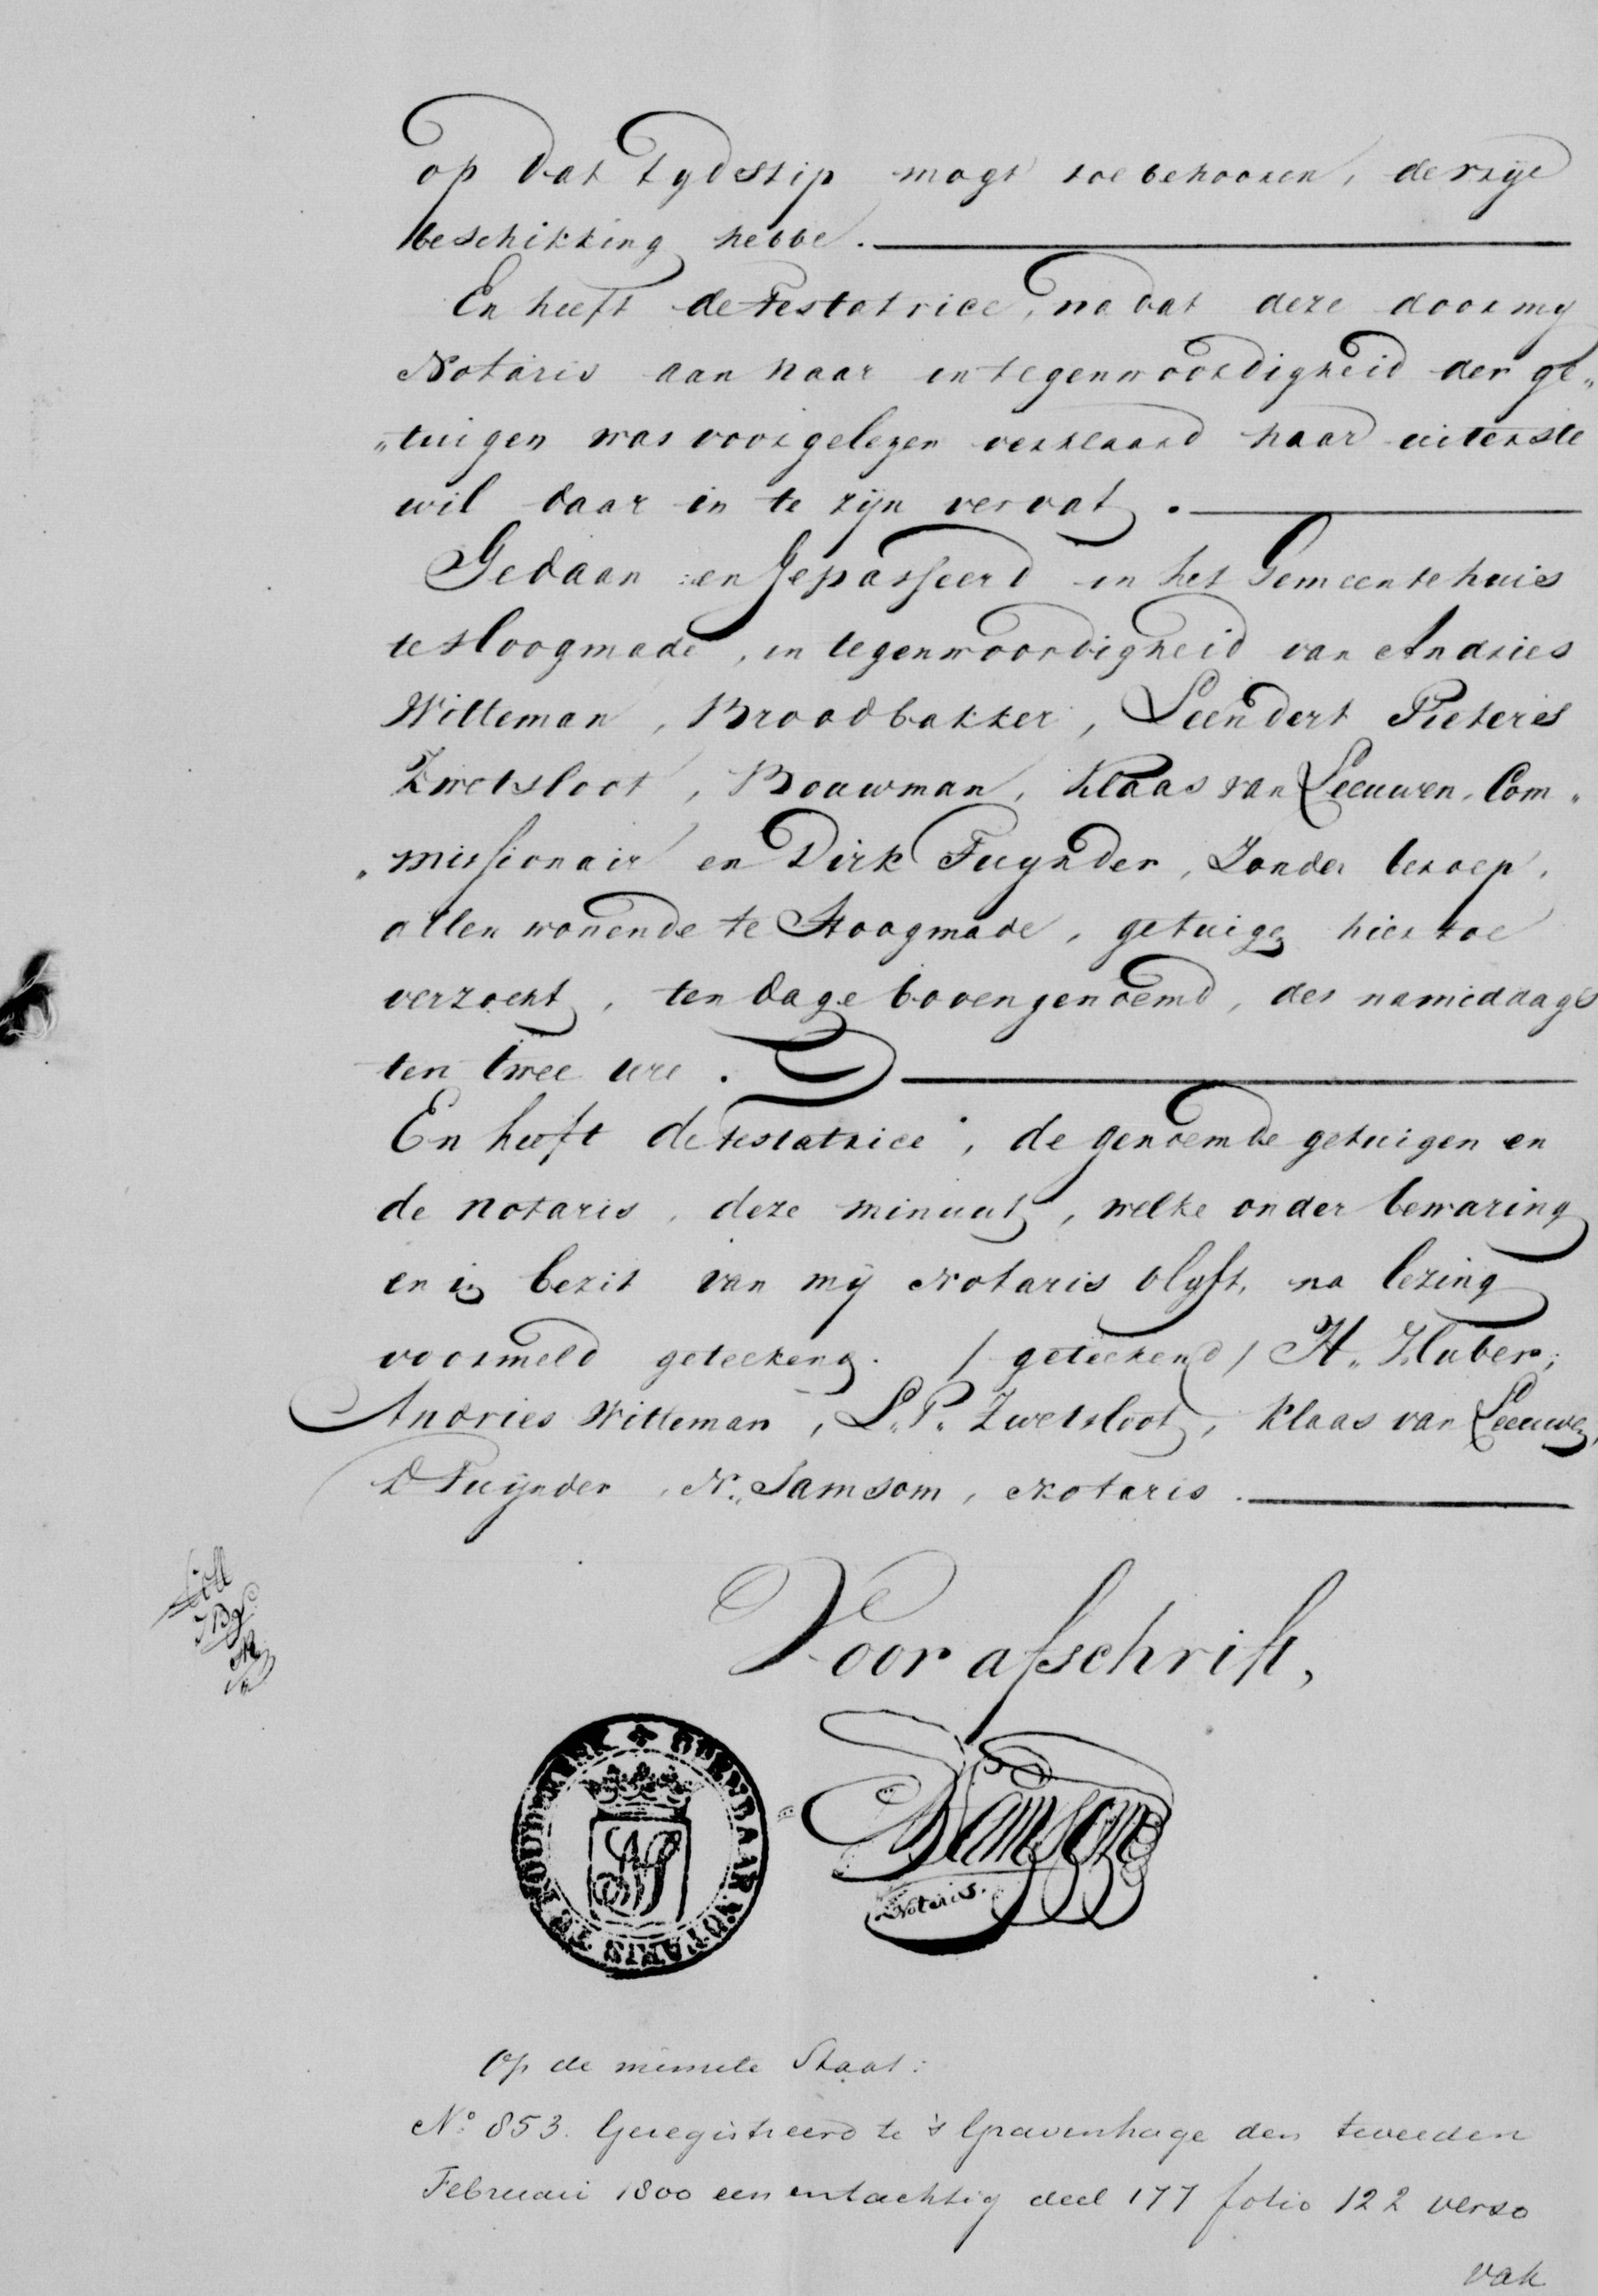 op dat tydstip mogt toebehooren, de vrije
beschikking hebbe.
En heeft de Testatrice, nadat deze door my
Notaris aan haar in tegenwoordigheid der ge„
„tuigen was voorgelezen verklaard haar uiterste
wil daar in te zijn vervat.
Gedaan en Gepasseerd in het Gemeentehuis
te Hoogmade, in tegenwoordigheid van Andries
Witteman, Broodbakker, Leendert Pieteris
Zwetsloot, Bouwman, Klaas van Leeuwen, Com„
„missionair en Dirk Fuynder, Zonder beroep,
allen wonende te Hoogmade, getuigen hiertoe
verzocht, ten dage bovengenoemd, des namiddags
ten twee ure.
En heeft de testatrice, de genoemde getuigen en
de notaris, deze minuut, welke onder bewaring
en in bezit van mij Notaris blyft, na lezing
voormeld geteekend. / geteekend / H. Huber;
Andries Witteman, L.P. Zwetsloot, Klaas van Leeuwen,
D Fuijnder, N. Samsom, Notaris.
Voor afschrift,
OPENBAAR NOTARIS TE KOUDEKERK
NSamsom
Notaris.
Op de minute Staat:
No 853. Geregistreerd te 's Gravenhage den tweeden
Februari 1800 een entachtig deel 177 folio 122 verso
vak